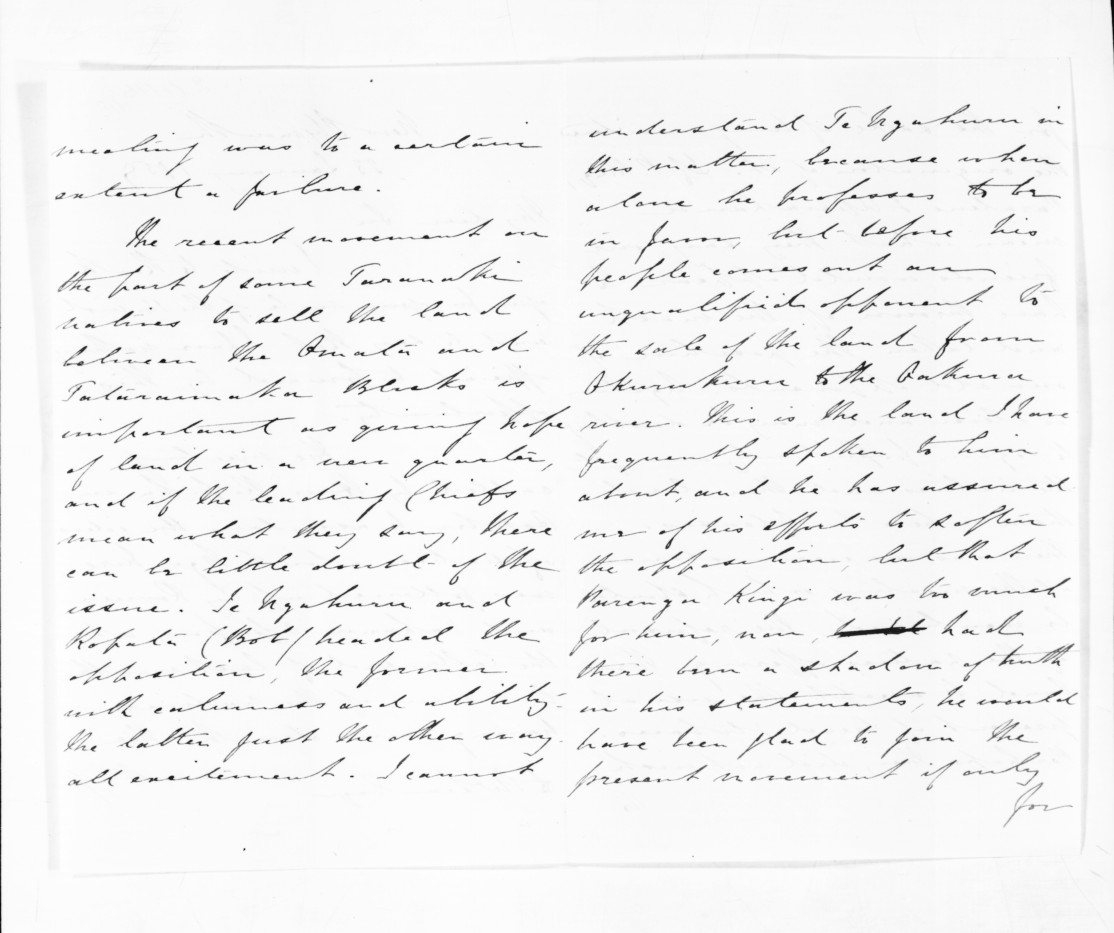 meeting was to a certain
extent a failure.
The recent movement on
the part of some Taranaki
natives to sell the land
between the Omata and
Tataraimaka Blocks is
important as giving hope
of land in a new quarter,
and if the leading Chiefs
mean what they say, there
can be little doubt of the
issue. Te Ngahuru and
Ropata (Bob) headed the
opposition, the former
with calmness and ability -
the latter just the other way.
all excitement. I cannot
understand Te Ngahuru in
this matter, because when
alone he professes to be
in favor, but before his
people comes out an
unqualified opponent to
the sale of the land from
Okurukuru to the Oakura
river. This is the land I have
frequently spoken to him
about, and he has assured
me of his efforts to soften
the opposition, but that
Parenga Kingi was too much
for him, now, had
there been a shadow of truth
in his statements, he would
have been glad to join the
present movement if only
for